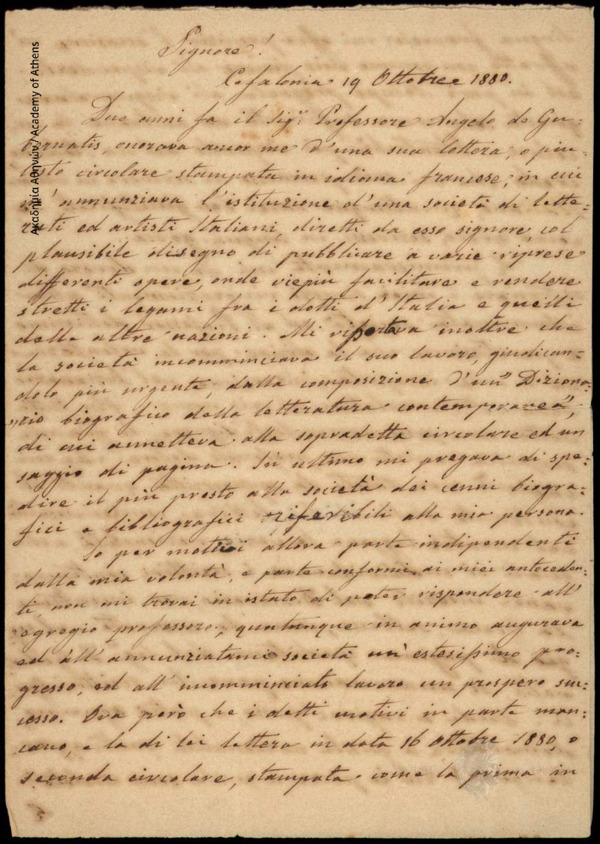 Signore!
Cefalonia 19 Ottobre 1880.
Due anni fa il Sigr. Professore Angelo de Gu-
bernatis, onorava ancor me d'una sua lettera, o piu-
tosto circolare stampata in idioma francese, in cui
m'annunziava l'istituzione d'una società di lette-
rati ed artisti Italiani, diretti da esso signore col
plausibile disegno di pubblicare a varie riprese
differenti opere, onde viepiù facilitare e rendere
stretti i legami fra i dotti d'Italia e quelli
delle altre nazioni. Mi riportava inoltre che
la società incomminciava il suo lavoro, giudican-
dolo più urgente, dalla composizione d'un" Diziona-
rio biografico della letteratura contemporanea",
di cui annetteva alla sopradetta circolare ed un
saggio di pagina. In ultimo mi pregava di spe-
dire il più presto alla società dei cenni biogra-
fici e bibliografici riferibili alla mia persona.
Io per motivi allora parte indipendenti
dalla mia volontà, e parte conformi ai miei anteceden-
ti, non mi trovai in istato di poter rispondere all'
egregio professore, quantunque in animo augurava
ed all'annunziatami società un'estesissimo pro-
gresso, ed all'incomminciato lavoro un prospero suc-
cesso. Ora però che i detti motivi in parte man-
cano, e la di lei lettera in data 16 Ottobre 1880, o
seconda circolare, stampata come la prima in
Ακαδημία Αθηνών / Academy of Athens